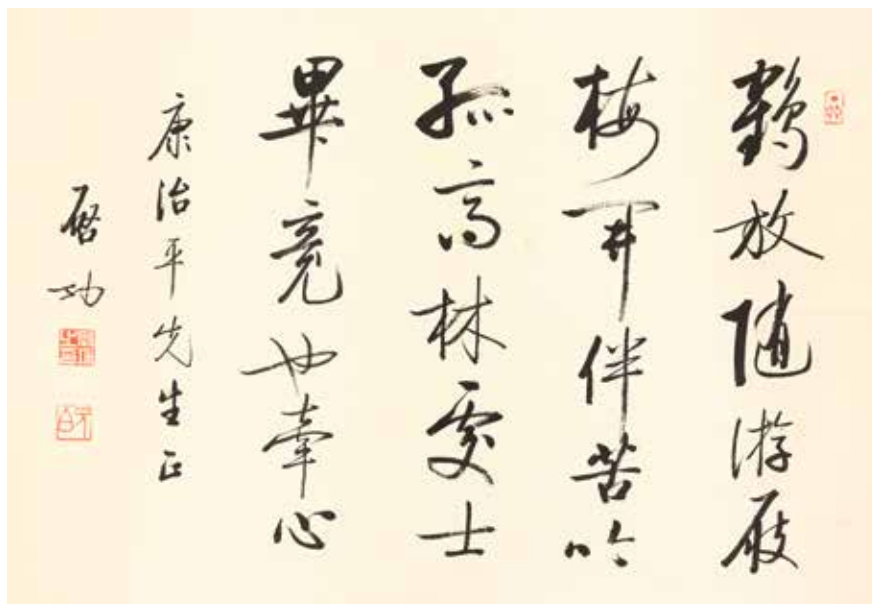 鶴放随游屐
梅開伴苦吟
孤高林處士
畢竟也牽心
康治平先生正
啓功
元白